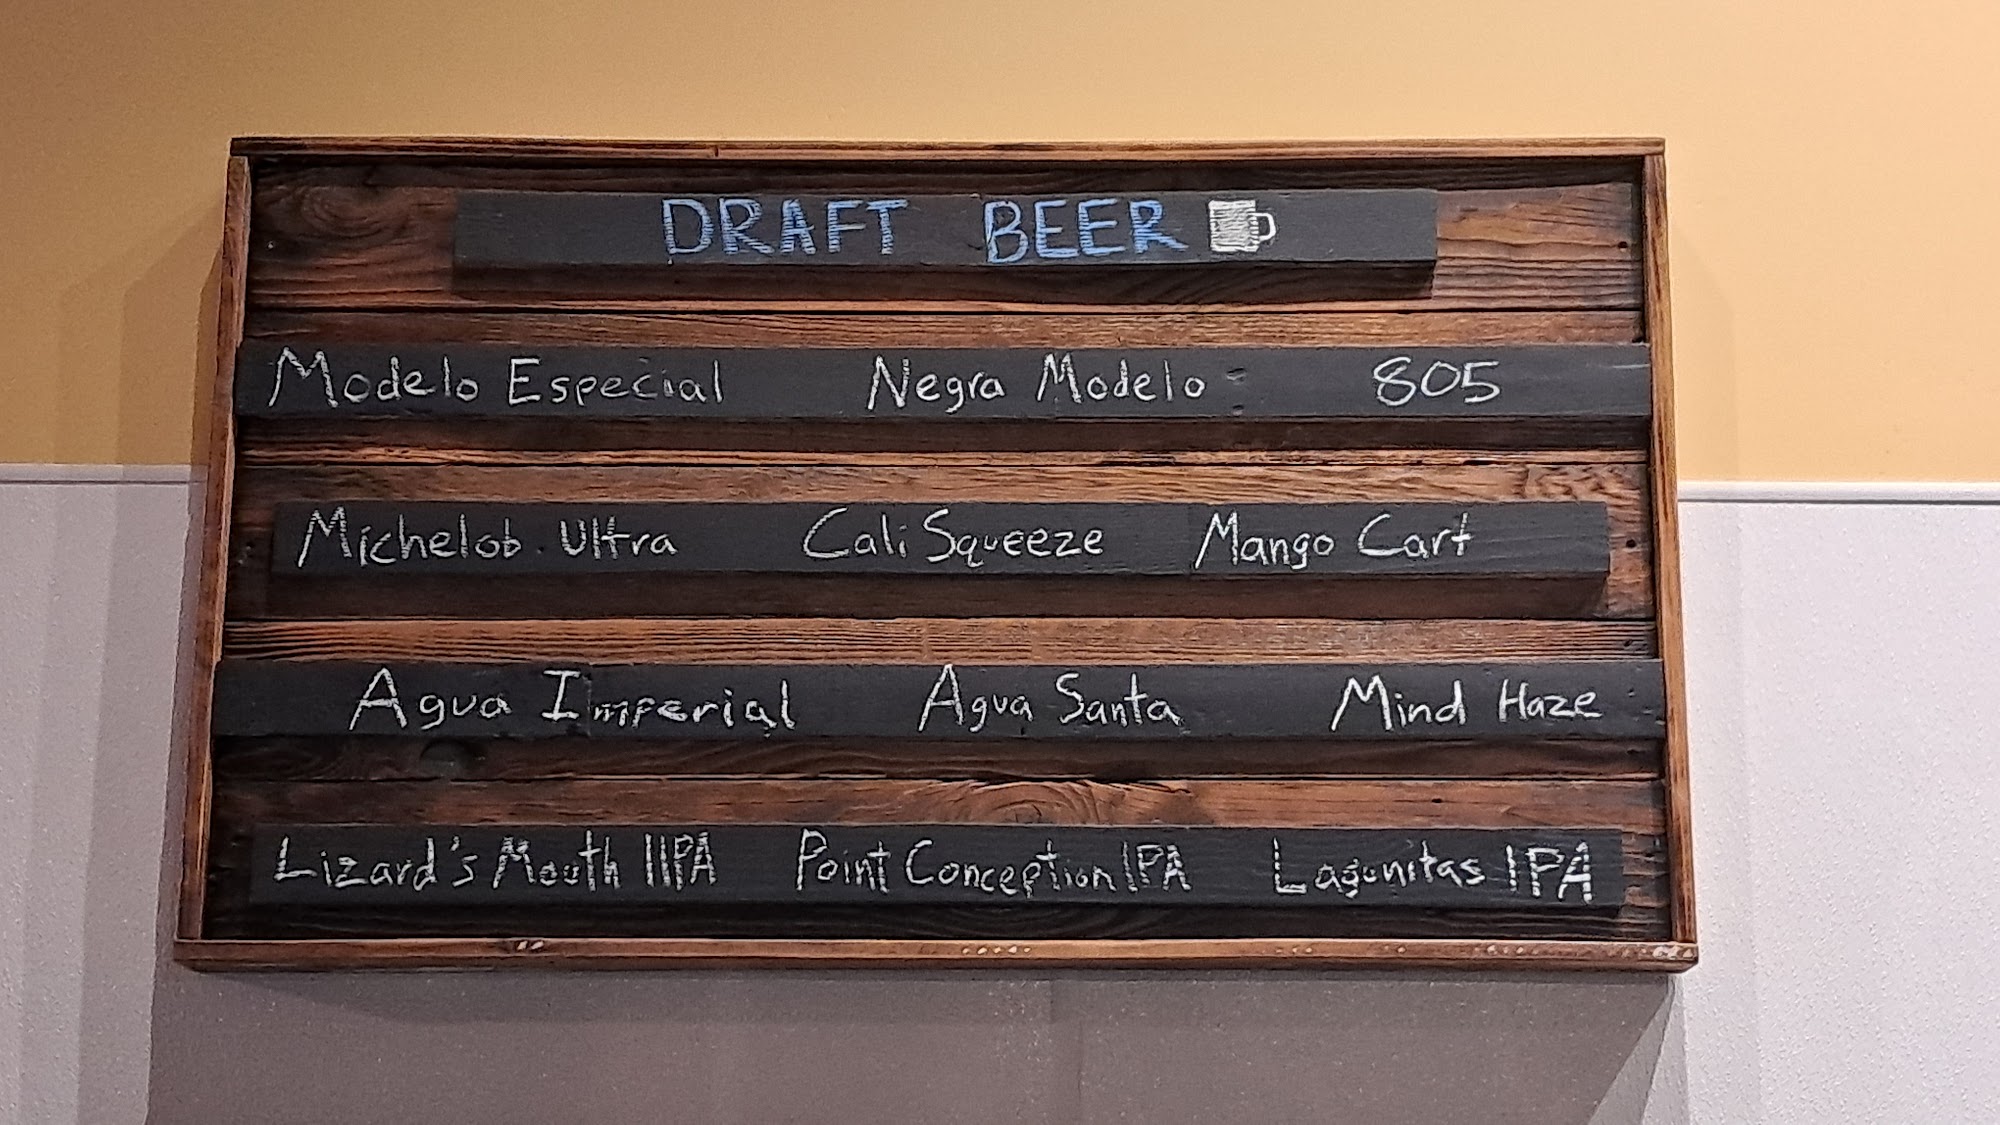 DRAFT BEER
Modelo Especial Negra Modelo 805
Michelob Ultra Cali Squeeze Mango Cart
Agua Imperial Agua Santa Mind Haze
Lizard's Mouth IIPA Point Conception IPA Lagunitas IPA